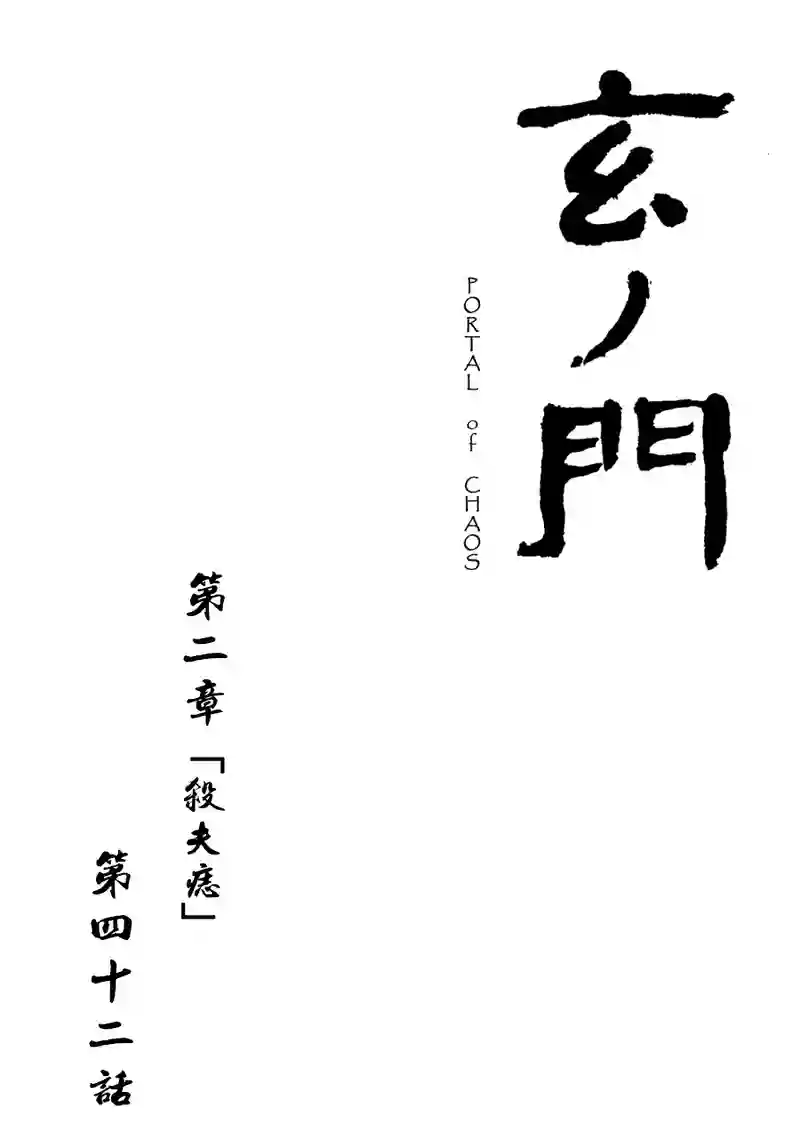 玄ノ門
PORTAL of CHAOS
第二章「殺夫痣」
第四十二話